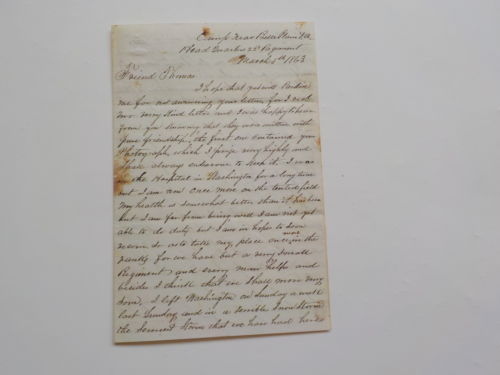 Camp Near Belle Plain Va
Head Quarters 22d Regiment
March 4th 1863
Friend Thomas
I hope that you will
me for not answering your letters, for I
two very kind letters and I was happy to hear
from you knowing that they was written with
pure friendship, the first one contained your
Photograph, which I prize very highly and
shall always endeavor to keep it. I was
in the Hospital in Washington for a long time
but I am now once more on the tented field
My health is somewhat better than it has been
but I am far from being well I am not yet
able to do duty but I am in hopes to soon
so as to take my place once more in the
ranks for we have but a very small
Regiment and every man helps and
besides I think that we shall move very
soon, I left Washington on Sunday a week
last Sunday and in a terrible Snow Storm
the Storm that we have had here